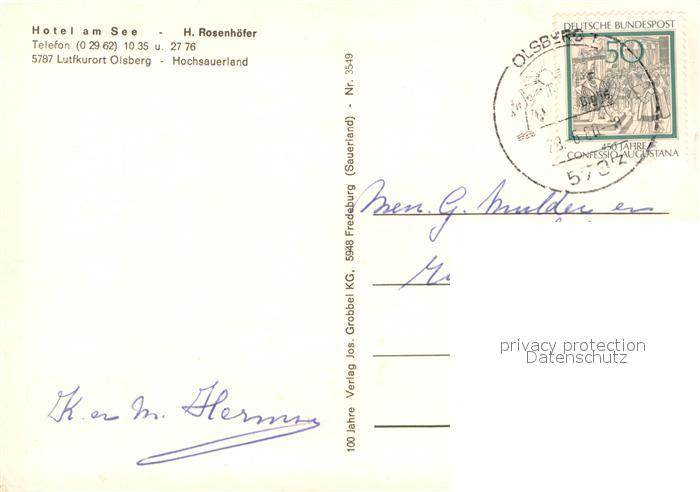 Hotel am See - H. Rosenhöfer
Telefon (0 29 62) 10 35 u. 27 76
5787 Luftkurort Olsberg - Hochsauerland
100 Jahre Verlag Jos. Grobbel KG, 5948 Fredeburg (Sauerland) - Nr. 3549
DEUTSCHE BUNDESPOST
50
450 JAHRE
CONFESSIO AUGUSTANA
OLSBERG 1
G. Mulder en
K. en M.
privacy protection
Datenschutz